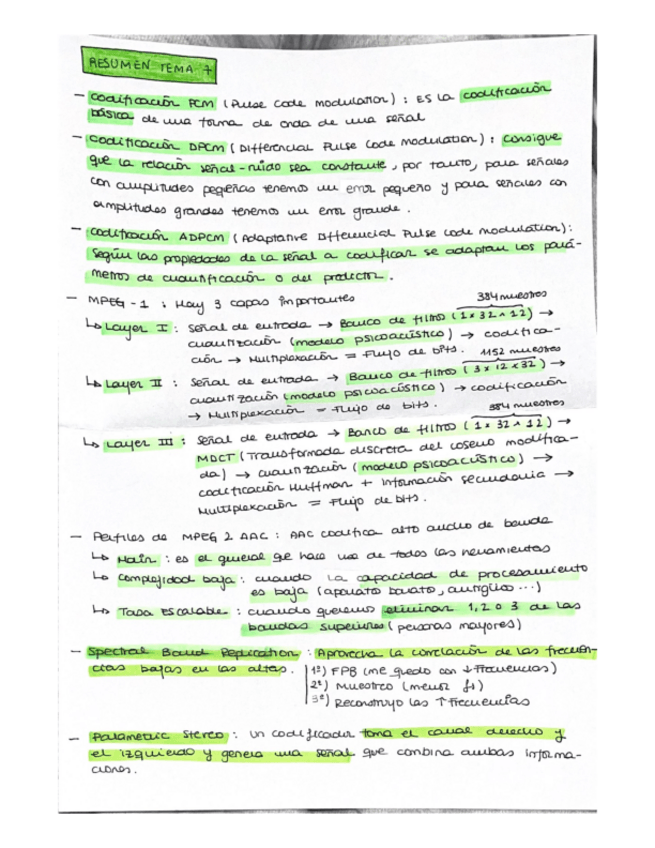 RESUMEN TEMA 7
- Codificación PCM (Pulse Code Modulation) : Es la codificación
básica de una forma de onda de una señal
- Codificación DPCM (Differencial Pulse Code Modulation) : Consigue
que la relación señal-ruido sea constante, por tanto, para señales
con amplitudes pequeñas tenemos un error pequeño y para señales con
amplitudes grandes tenemos un error grande.
- Codificación ADPCM (Adaptative Differencial Pulse Code Modulation):
Según las propiedades de la señal a codificar se adaptan los pará-
metros de cuantificación o del predictor.
- MPEG-1 : Hay 3 capas importantes
384 muestras
↳ Layer I : Señal de entrada → Banco de filtro (1x32x12) →
cuantización (modelo psicoacústico) → codifica-
ción → Multiplexación = Flujo de bits.
1152 muestras
↳ Layer II : Señal de entrada → Banco de filtro (3x12x32) →
cuantización (modelo psicoacústico) → codificación
→ Multiplexación = Flujo de bits.
384 muestras
↳ Layer III : Señal de entrada → Banco de filtro (1x32x12) →
MDCT (Transformada discreta del coseno modifica-
da) → cuantización (modelo psicoacústico) →
codificación Huffman + información secundaria →
Multiplexación = Flujo de bits.
- Perfiles de MPEG 2 AAC : AAC codifica alto ancho de banda
↳ Main : es el general que hace uso de todas las herramientas
↳ Complejidad baja : cuando la capacidad de procesamiento
es baja (aparato barato, antiguo...)
↳ Tasa Escalable : cuando queremos eliminar 1, 2 o 3 de las
bandas superiores (personas mayores)
- Spectral Band Replication : Aprovecha la correlación de las frecuen-
cias bajas en las altas.
1º) FPB (me quedo con ↓ Frecuencias)
2º) Muestreo (menor fs)
3º) Reconstruyo las ↑ frecuencias
- Parametric Stereo : Un codificador toma el canal derecho y
el izquierdo y genera una señal que combina ambas informa-
ciones.